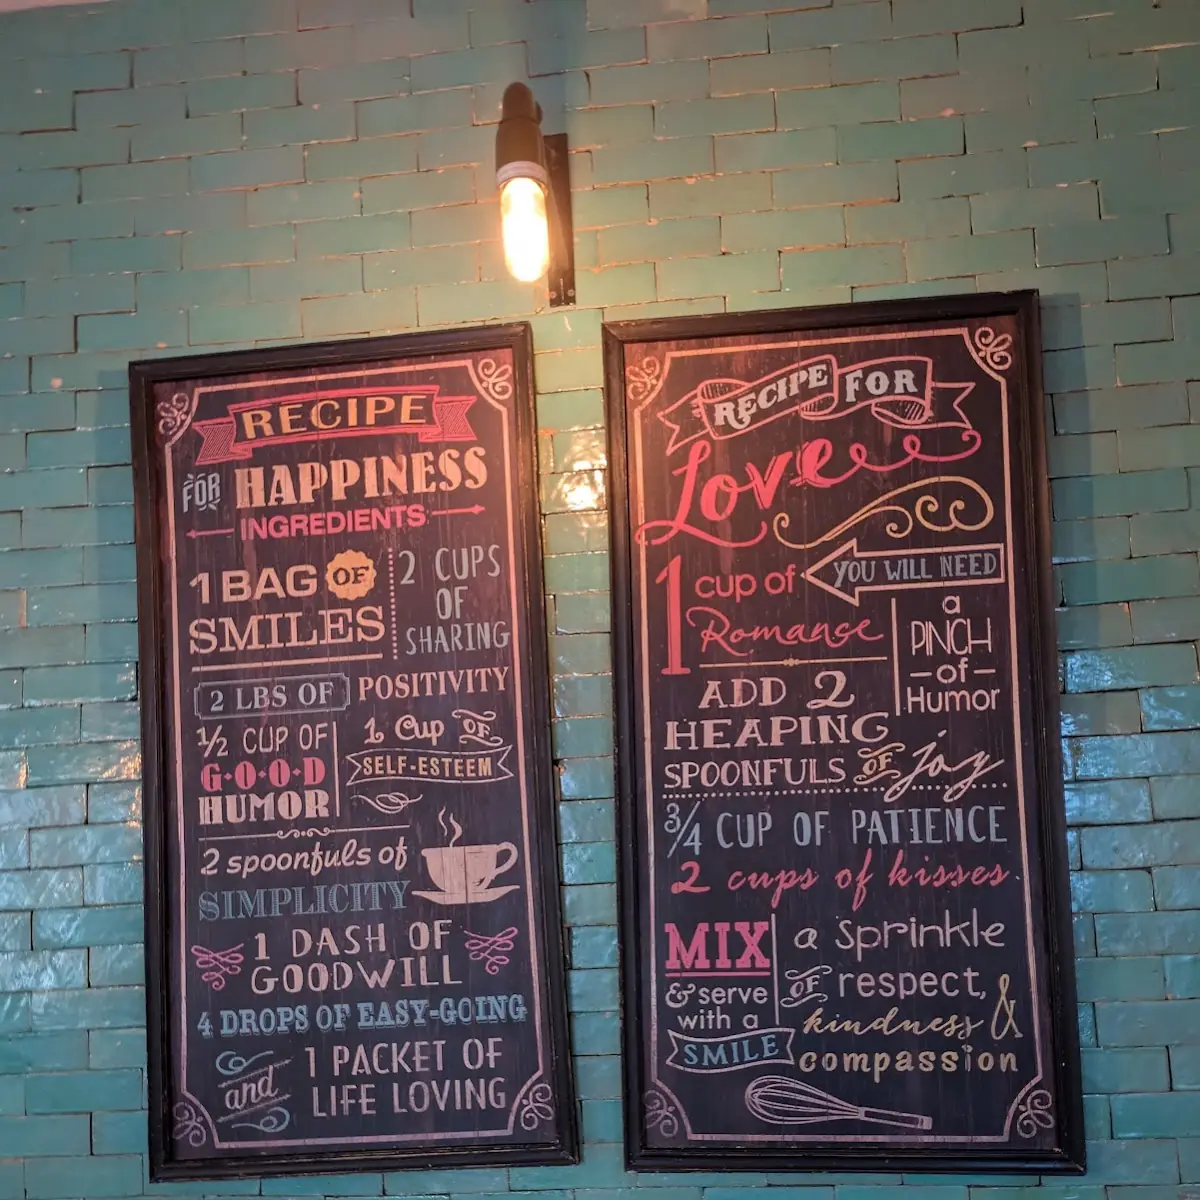 RECIPE
FOR HAPPINESS
INGREDIENTS
1 BAG OF
SMILES
2 CUPS
OF
SHARING
2 LBS OF POSITIVITY
½ CUP OF
G·O·O·D
HUMOR
1 Cup OF
SELF-ESTEEM
2 spoonfuls of
SIMPLICITY
1 DASH OF
GOODWILL
4 DROPS OF EASY-GOING
and
1 PACKET OF
LIFE LOVING
RECIPE FOR
Love
YOU WILL NEED
1 cup of
Romance
a
PINCH
-of-
Humor
ADD 2
HEAPING
SPOONFULS OF joy
3/4 CUP OF PATIENCE
2 cups of kisses
MIX
& serve
with a
SMILE
a sprinkle
OF respect,
kindness &
compassion